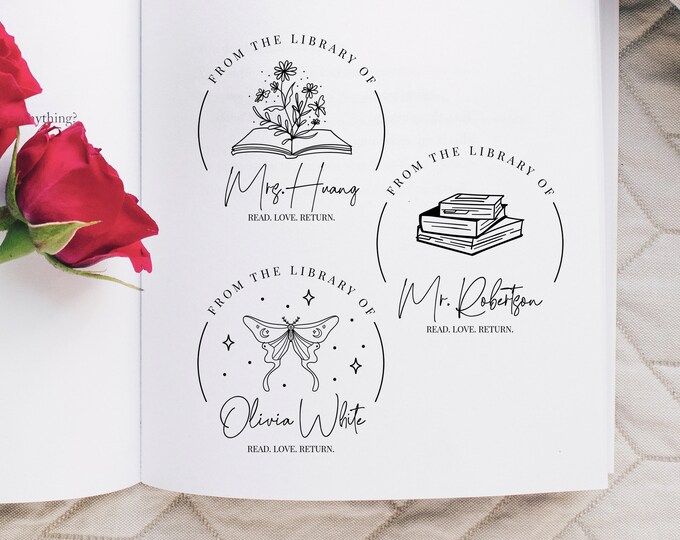 anything?
FROM THE LIBRARY OF
Mrs. Huang
READ. LOVE. RETURN.
FROM THE LIBRARY OF
Mr. Robertson
READ. LOVE. RETURN.
FROM THE LIBRARY OF
Olivia White
READ. LOVE. RETURN.